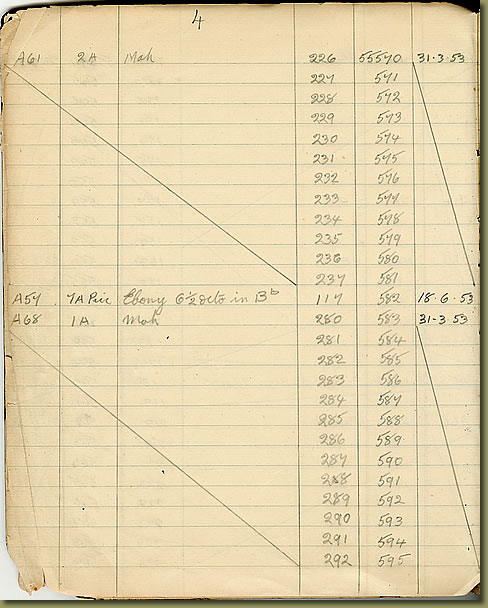 4
A61 2A Mah 226 55570 31·3·53
227 571
228 572
229 573
230 574
231 575
232 576
233 577
234 578
235 579
236 580
237 581
A57 7A Pic Ebony 6½ 8cts in Bb 117 582 18·6·53
A68 1A Mah 280 583 31-3·53
281 584
282 585
283 586
284 587
285 588
286 589
287 590
288 591
289 592
290 593
291 594
292 595